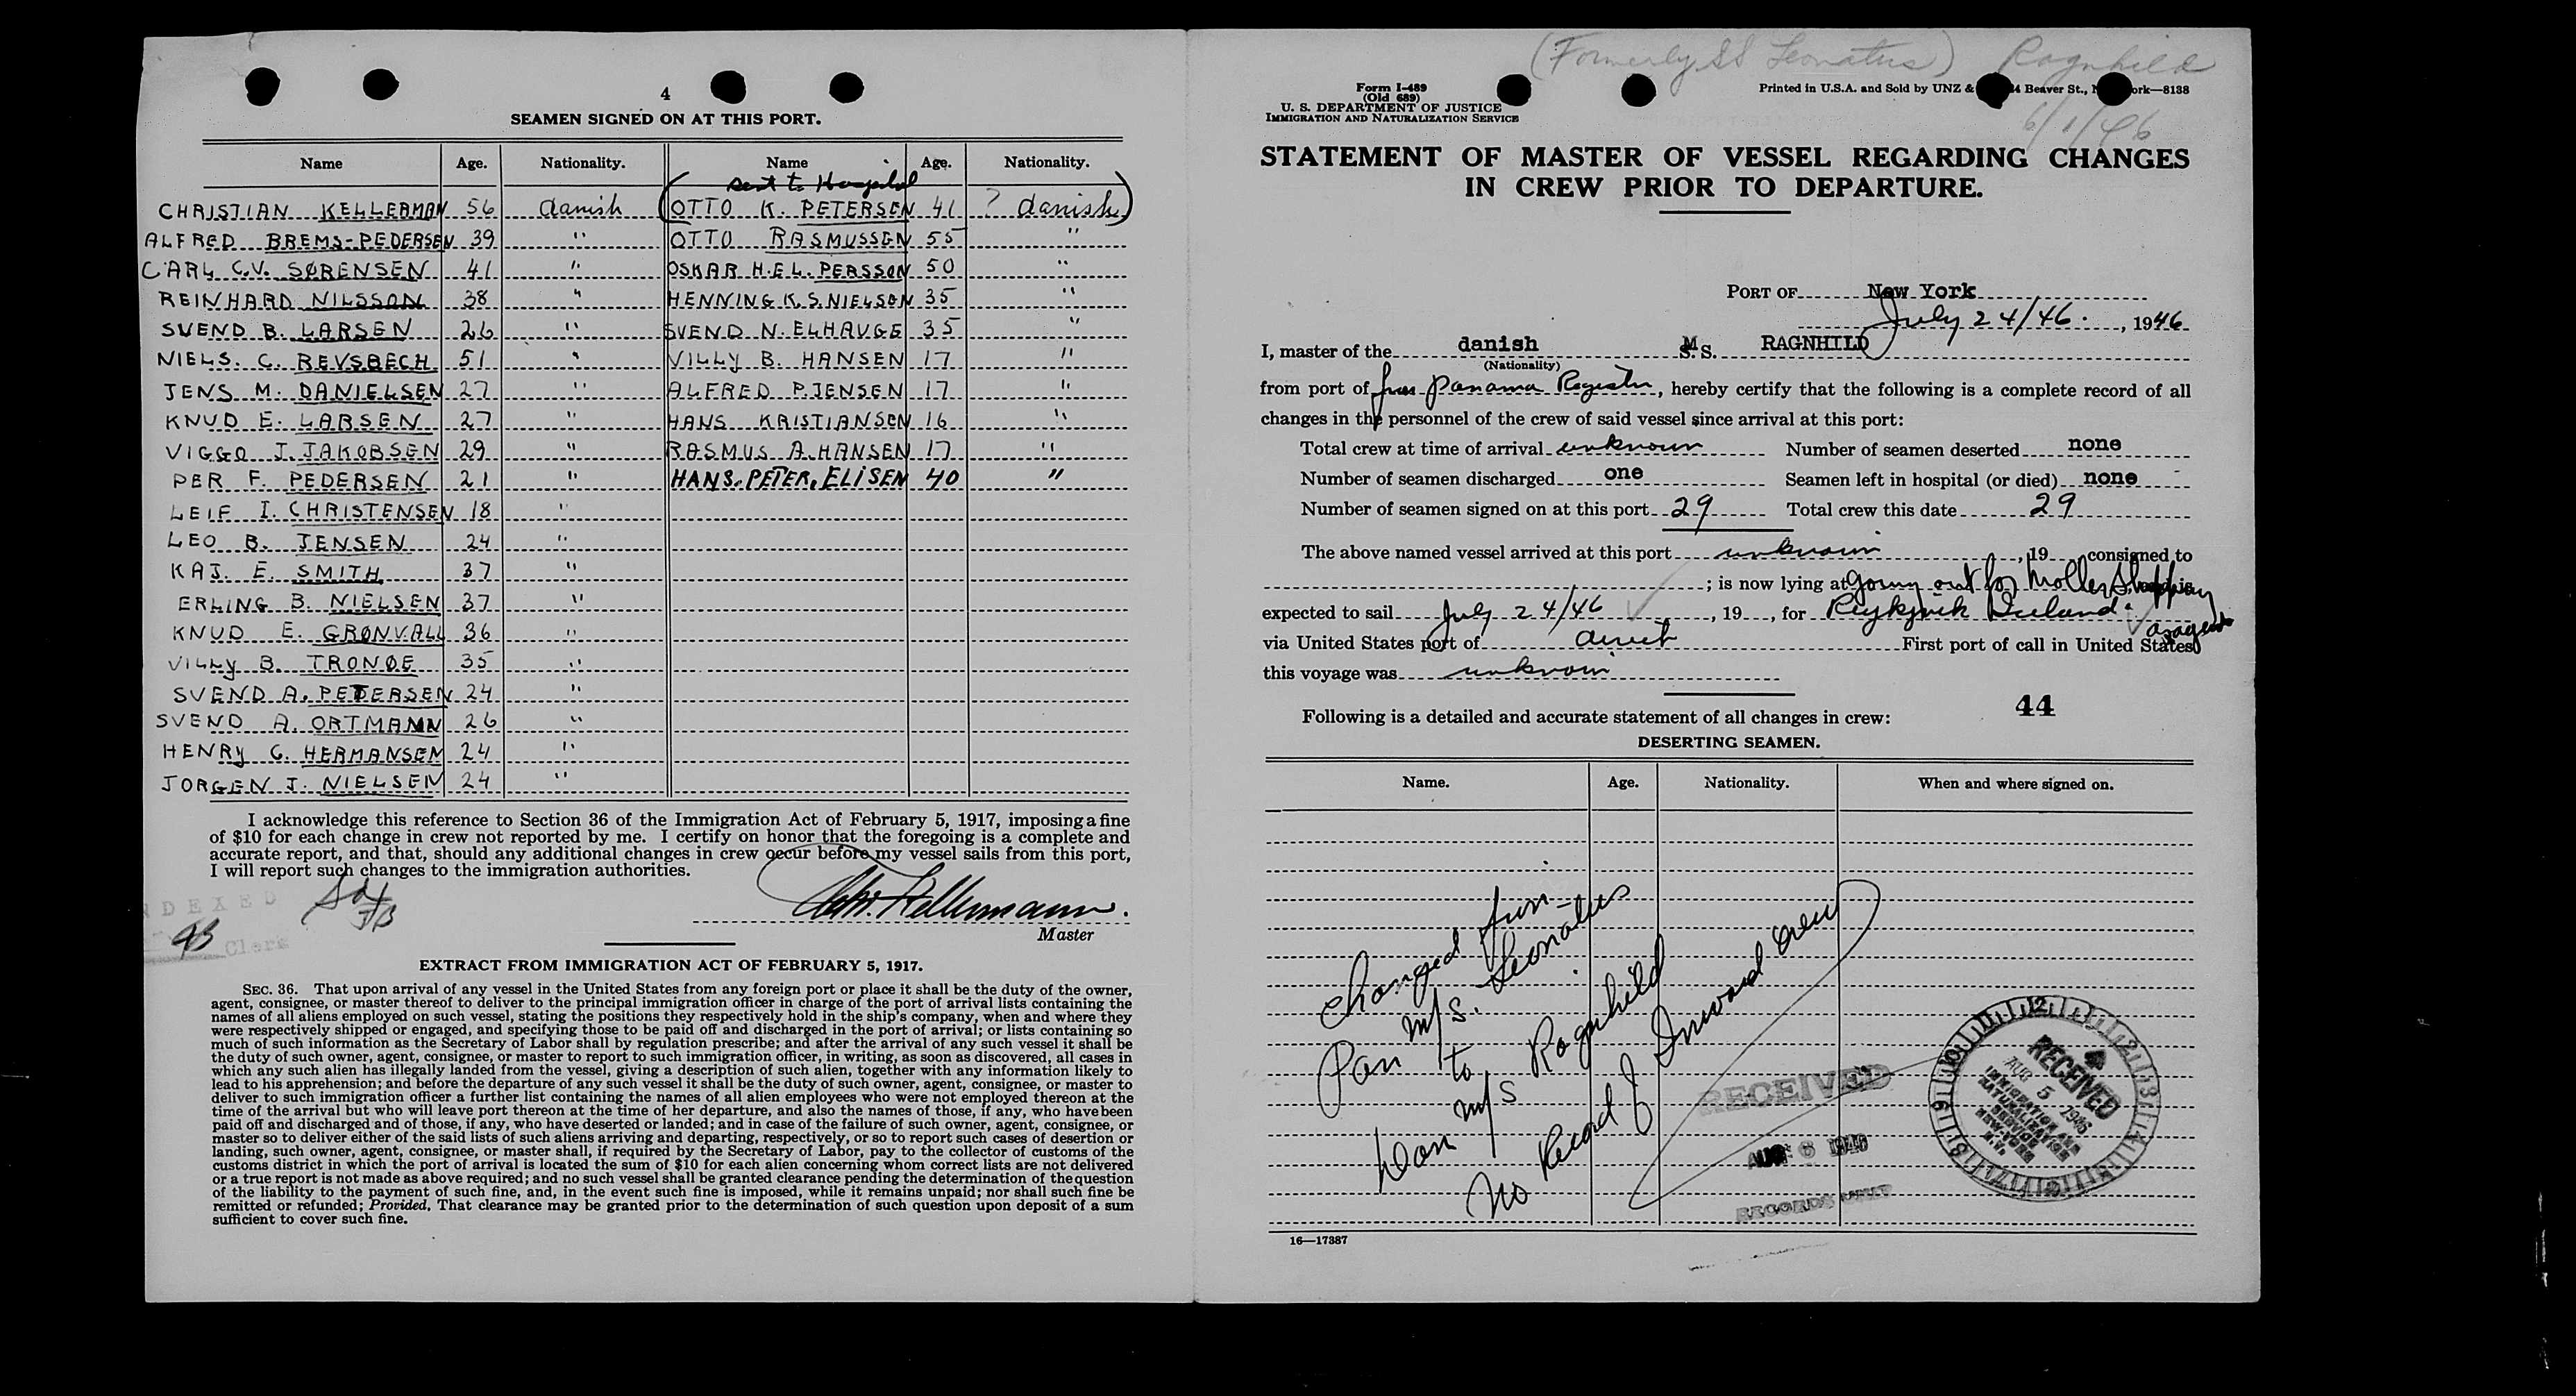 4
SEAMEN SIGNED ON AT THIS PORT.
Name Age. Nationality. Name Age. Nationality.
sent to Hospital
CHRISTIAN KELLERMAN 56 danish (OTTO K. PETERSEN 41 ? danish)
ALFRED BREMS-PEDERSEN 39 " OTTO RASMUSSEN 55 "
CARL C.V. SØRENSEN 41 " OSKAR H.E.L. PERSSON 50 "
REINHARD NILSSON 38 " HENNING K.S. NIELSEN 35 "
SVEND B. LARSEN 26 " SVEND N. ELHAUGE 35 "
NIELS. C. REVSBECH 51 " VILLY B. HANSEN 17 "
JENS M. DANIELSEN 27 " ALFRED P. JENSEN 17 "
KNUD E. LARSEN 27 " HANS KRISTIANSEN 16 "
VIGGO J. JAKOBSEN 29 " RASMUS A. HANSEN 17 "
PER F. PEDERSEN 21 " HANS. PETER. ELISEN 40 "
LEIF I. CHRISTENSEN 18 "
LEO B. JENSEN 24 "
KAJ. E. SMITH 37 "
ERLING B. NIELSEN 37 "
KNUD E. GRØNVALL 36 "
VILLY B. TRONØE 35 "
SVEND A. PETERSEN 24 "
SVEND A. ORTMANN 26 "
HENRY G. HERMANSEN 24 "
JORGEN J. NIELSEN 24 "
I acknowledge this reference to Section 36 of the Immigration Act of February 5, 1917, imposing a fine
of $10 for each change in crew not reported by me. I certify on honor that the foregoing is a complete and
accurate report, and that, should any additional changes in crew occur before my vessel sails from this port,
I will report such changes to the immigration authorities.
Chr. Kellermann.
Master
NDEXED
Clerk
EXTRACT FROM IMMIGRATION ACT OF FEBRUARY 5, 1917.
SEC. 36. That upon arrival of any vessel in the United States from any foreign port or place it shall be the duty of the owner,
agent, consignee, or master thereof to deliver to the principal immigration officer in charge of the port of arrival lists containing the
names of all aliens employed on such vessel, stating the positions they respectively hold in the ship's company, when and where they
were respectively shipped or engaged, and specifying those to be paid off and discharged in the port of arrival; or lists containing so
much of such information as the Secretary of Labor shall by regulation prescribe; and after the arrival of any such vessel it shall be
the duty of such owner, agent, consignee, or master to report to such immigration officer, in writing, as soon as discovered, all cases in
which any such alien has illegally landed from the vessel, giving a description of such alien, together with any information likely to
lead to his apprehension; and before the departure of any such vessel it shall be the duty of such owner, agent, consignee, or master to
deliver to such immigration officer a further list containing the names of all alien employees who were not employed thereon at the
time of the arrival but who will leave port thereon at the time of her departure, and also the names of those, if any, who have been
paid off and discharged and of those, if any, who have deserted or landed; and in case of the failure of such owner, agent, consignee, or
master so to deliver either of the said lists of such aliens arriving and departing, respectively, or so to report such cases of desertion or
landing, such owner, agent, consignee, or master shall, if required by the Secretary of Labor, pay to the collector of customs of the
customs district in which the port of arrival is located the sum of $10 for each alien concerning whom correct lists are not delivered
or a true report is not made as above required; and no such vessel shall be granted clearance pending the determination of the question
of the liability to the payment of such fine, and, in the event such fine is imposed, while it remains unpaid; nor shall such fine be
remitted or refunded; Provided, That clearance may be granted prior to the determination of such question upon deposit of a sum
sufficient to cover such fine.
(Formerly SS Leonatus) Ragnhild
6/1/46
Form I-489
(Old 689)
U. S. DEPARTMENT OF JUSTICE
IMMIGRATION AND NATURALIZATION SERVICE
Printed in U.S.A. and Sold by UNZ & 4 Beaver St., N ork—8138
STATEMENT OF MASTER OF VESSEL REGARDING CHANGES
IN CREW PRIOR TO DEPARTURE.
PORT OF New York
July 24/46. , 1946
I, master of the danish M S.S. RAGNHILD
(Nationality)
from port of from Panama Register, hereby certify that the following is a complete record of all
changes in the personnel of the crew of said vessel since arrival at this port:
Total crew at time of arrival unknown Number of seamen deserted none
Number of seamen discharged one Seamen left in hospital (or died) none
Number of seamen signed on at this port 29 Total crew this date 29
The above named vessel arrived at this port unknown , 19 consigned to
; is now lying at going out for Moller Shipping
expected to sail July 24/46 , 19 , for Reykjavik Iceland. as agents
via United States port of direct First port of call in United States
this voyage was unknown
44
Following is a detailed and accurate statement of all changes in crew:
DESERTING SEAMEN.
Name. Age. Nationality. When and where signed on.
changed from
Pan m/s. Leonatus
to
Dan m/s Ragnhild
No Record of Inward crew
RECEIVED
AUG 6 1946
RECORDS UNIT
RECEIVED
AUG 5 1946
IMMIGRATION AND
NATURALIZATION
SERVICE
NEW YORK
N.Y.
16—17387